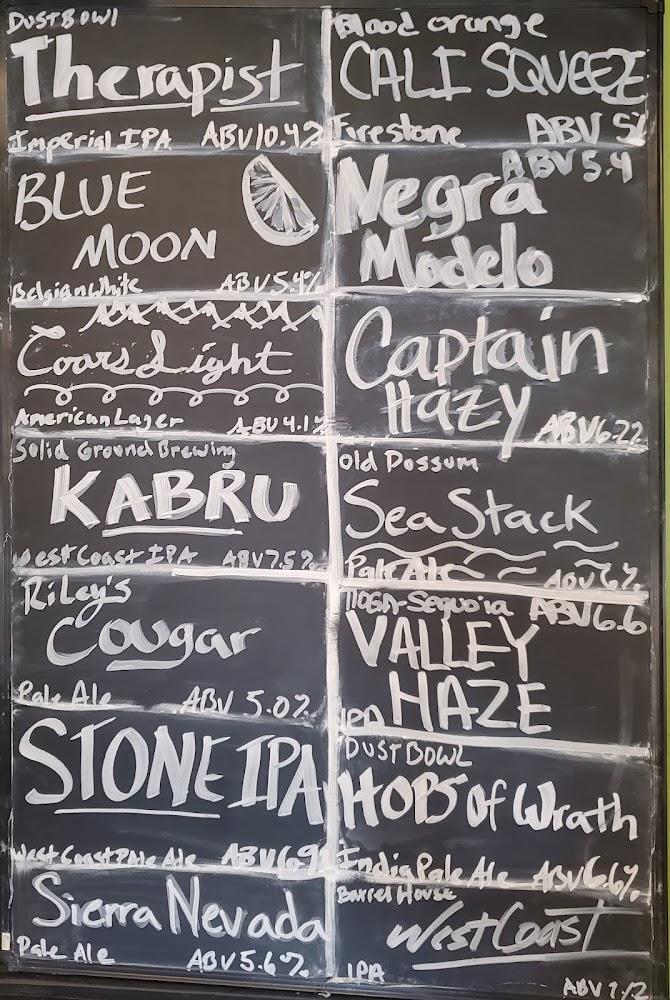 DUSTBOWl
Therapist
Imperial IPA ABV 10.4%
BLUE
MOON
Belgian White ABV 5.4%
Coors Light
American Lager ABV 4.1%
Solid Ground Brewing
KABRU
West Coast IPA ABV 7.5%
Riley's
Cougar
Pale Ale ABV 5.0%
STONE IPA
West Coast Pale Ale ABV 6.9%
Sierra Nevada
Pale Ale ABV 5.6%
Blood orange
CALI SQUEEZE
Firestone ABV 5%
ABV 5.4
Negra
Modelo
Captain
Hazy ABV 6.2%
Old Possum
Sea Stack
Pale Ale ABV 6%
Sequoia ABV 6.6
VALLEY
IPA HAZE
DUST BOWL
HOPS of Wrath
India Pale Ale ABV 6.6%
Barrel House
West Coast
IPA
ABV